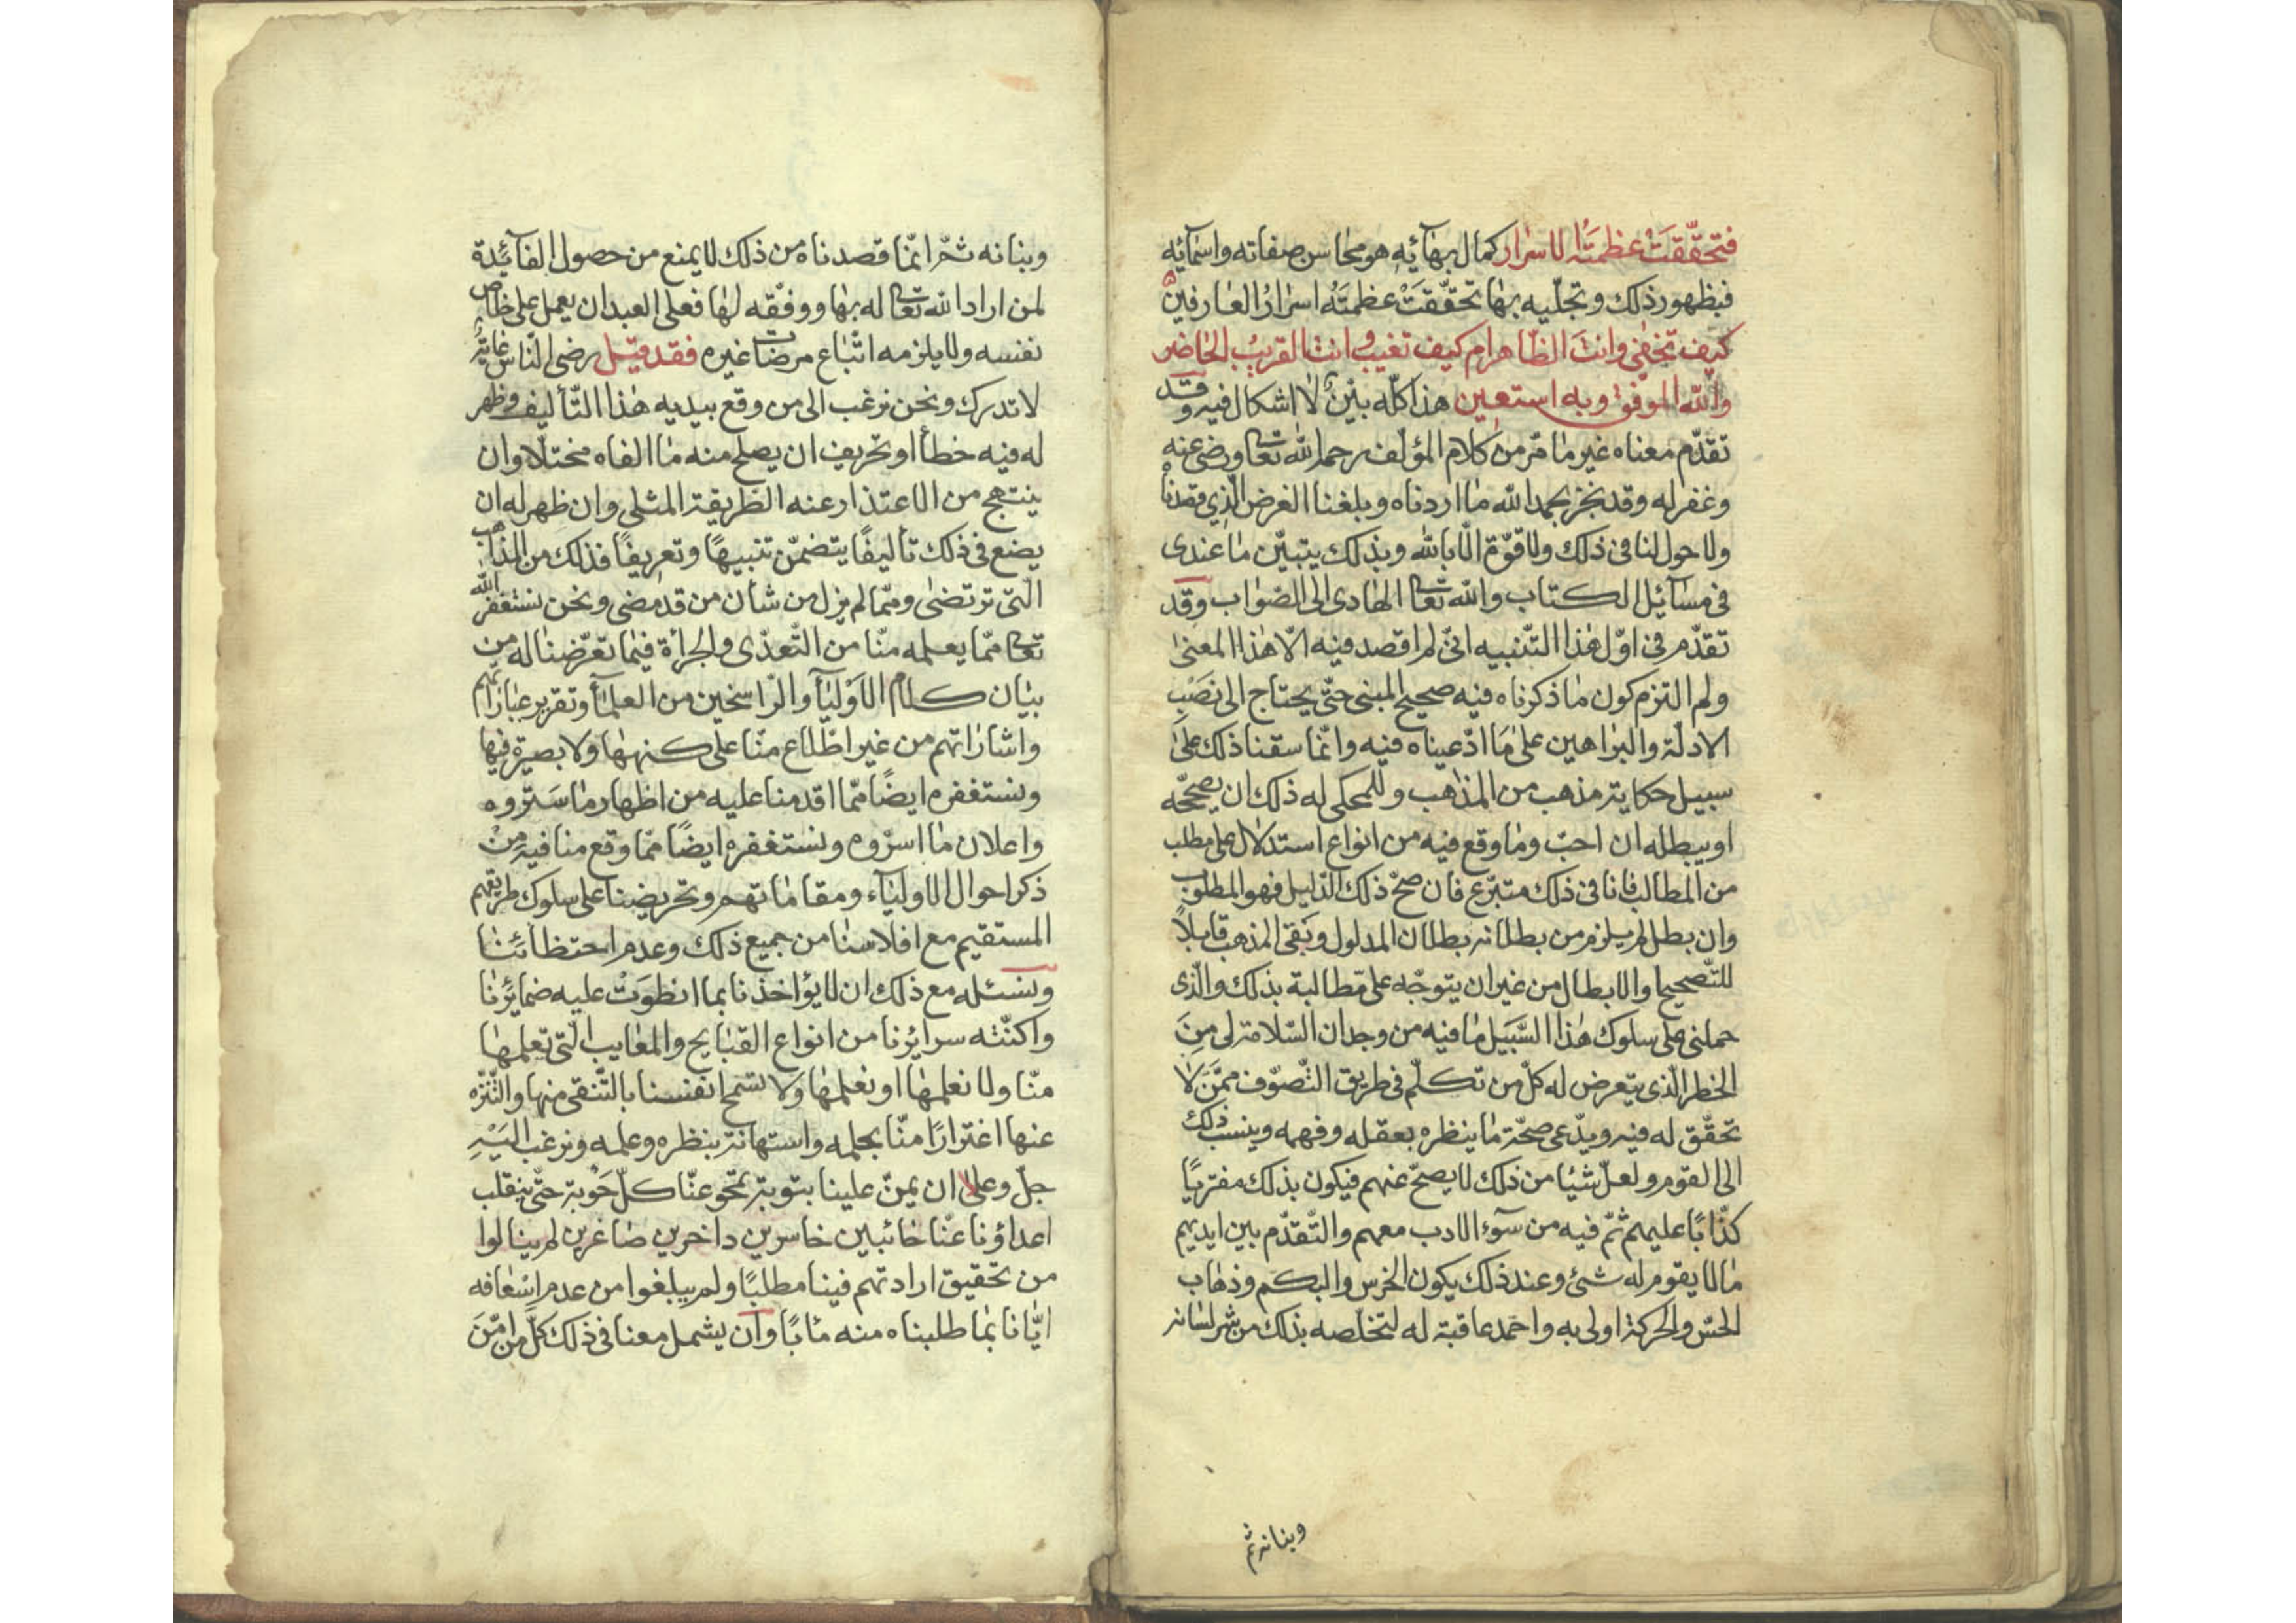 فتحقّقَتْ عظمتَهُ الاسرار كمال بهآئِهِ هو محاسن صفاته واسمآئِه
فبظهور ذلك وتجلّيه بها تحقّقَتْ عظمتَهُ اسرارُ العارفين
كيف تخفٰى وانتَ الظّاهر ام كيف تغيب وانت القريبُ الحاضر
والله الموفق وبه استعين هذا كلّه بَيّنٌ لا اشكال فيه وقد
تقدّم معناه غير ما مرّ من كلام المؤلّف رحمه الله تعا ورضى عنه
وغفر له وقد نجز بحمد الله ما اردناه وبلغنا الغرض الّذى قصدنا
ولا حول لنا فى ذلك ولا قوّة الّا بالله وبذلك يتبيّن ما عندى
فى مسآئِل الكتاب والله تعا الهادى الى الصّواب وقد
تقدّم فى اوّل هذا التّنبيه انّى لم اقصد فيه الّا هذا المعنى
ولم التزم كون ما ذكرناه فيه صحيح المبنى حتّى يحتاج الى نصْب
الادلّة والبراهين على ما ادّعيناه فيه وانّما سقنا ذلك على
سبيل حكاية مذهب من المذاهب وللمحكى له ذلك ان يصحّحه
او يبطله ان احبّ وما وقع فيه من انواع استدلال على مطلب
من المطالب فانا فى ذلك متبرّع فان صحّ ذلك الدّليل فهو المطلوب
وان بطل لم يلزم من بطلانه بطلان المدلول وبَقى المذهب قابلًا
للتّصحيح والابطال من غير ان يتوجّه علىّ مطالبة بذلك والّذى
حملنى على سلوك هذا السَّبيل ما فيه من وجدان السّلامة لى مِنَ
الخطر الّذى يتعرض له كلّ من تكلّم فى طريق التّصوّف ممّنْ لا
تحقّق له فيه ويدّعى صحّة ما ينظره بعقله وفهمه وينسب ذلك
الى القوم ولعلّ شيئا من ذلك لا يصحّ عنهم فيكون بذلك مفتريًا
كذّابًا عليهم ثمّ فيه من سوء الادب معهم والتّقدّم بين ايديهم
ما لا يقوم له شئ وعند ذلك يكون الخرس والبكم وذهاب
الحسّ والحركة اولى به واحمد عاقبة له لتخلّصه بذلك من شر لسانه
وبنانه ثم
وبنانه ثمّ انّما قصدناه من ذلك لا يمنع من حصول الفآئِدة
لمن اراد الله تعا له بها ووفّقه لها فعلى العبد ان يعمل على خلاص
نفسه ولا يلزمه اتّباع مرضات غيره فقد قيل رضى النّاس غايةٌ
لا تدرك ونحن نرغب الى من وقع بيديه هذا التّأليف وظهر
له فيه خطأ او تحريف ان يصلح منه ما الفاه مختلّا وان
ينتهج من الاعتذار عنه الطّريقة المثلى وان ظهر له ان
يضع فى ذلك تأليفًا يتضمّن تنبيهًا وتعريفًا فذلك من المذاهب
الّتى ترتضىٰ وممّا لم يزل من شأن من قد مضى ونحن نستغفر الله
تعا ممّا يعلمه منّا من التّعدّى والجرأة فيما تعرّضنا له من
بيان كلام الاوْليآ والرّاسخين من العلمآ وتقرير عباراتهم
واشاراتهم من غير اطّلاع منّا على كنهها ولا بصيرة فيها
ونستغفره ايضًا ممّا اقدمنا عليه من اظهار ما سَتروه
واعلان ما اسرّوه ونستغفره ايضًا ممّا وقع منا فيه مِنْ
ذكر احوال الاوليآء ومقاماتهم وتحريضنا على سلوك طريقهم
المستقيم مع افلاسنا من جميع ذلك وعدم احتظائِنا
ونسئله مع ذلك ان لا يؤاخذنا بما انطوَتْ عليه ضمائِرنا
واكنّته سرايُرنا من انواع القبايح والمعايب الّتى تعلمها
منّا ولا نعلمها او نعلمها ولا تسمح انفسنا بالتّنقى منها والتّنزّه
عنها اغترارًا منّا بحلمه واستهانة بنظره وعلمه ونرغب اليْهِ
جلّ وعلى ان يمنّ علينا بتوبة تمحو عنّا كلّ حَوبة حتّى ينقلب
اعداؤنا عنّا خائبين خاسرين داخرين صاغرين لم ينالوا
من تحقيق ارادتهم فينا مطلبًا ولم يبلغوا من عدم اسعافه
ايّانا بما طلبناه منه مأبًا وان يشمل معنا فى ذلك كلّ من امّن